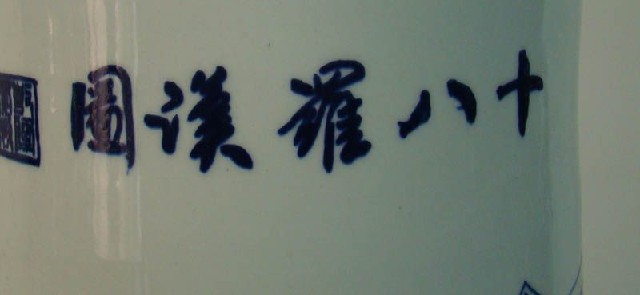 十八羅漢圖